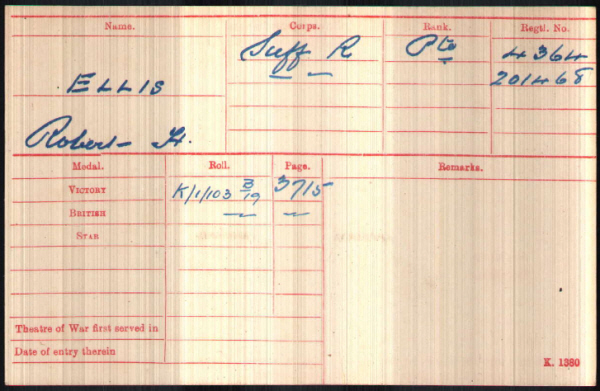 Name. Corps. Rank. Regtl. No.
Suff R Pte 4364
201468
ELLIS
Robert H.
Medal. Roll. Page. Remarks.
VICTORY K/1/103 B/19 3715
BRITISH
STAR
Theatre of War first served in
Date of entry therein
K. 1380